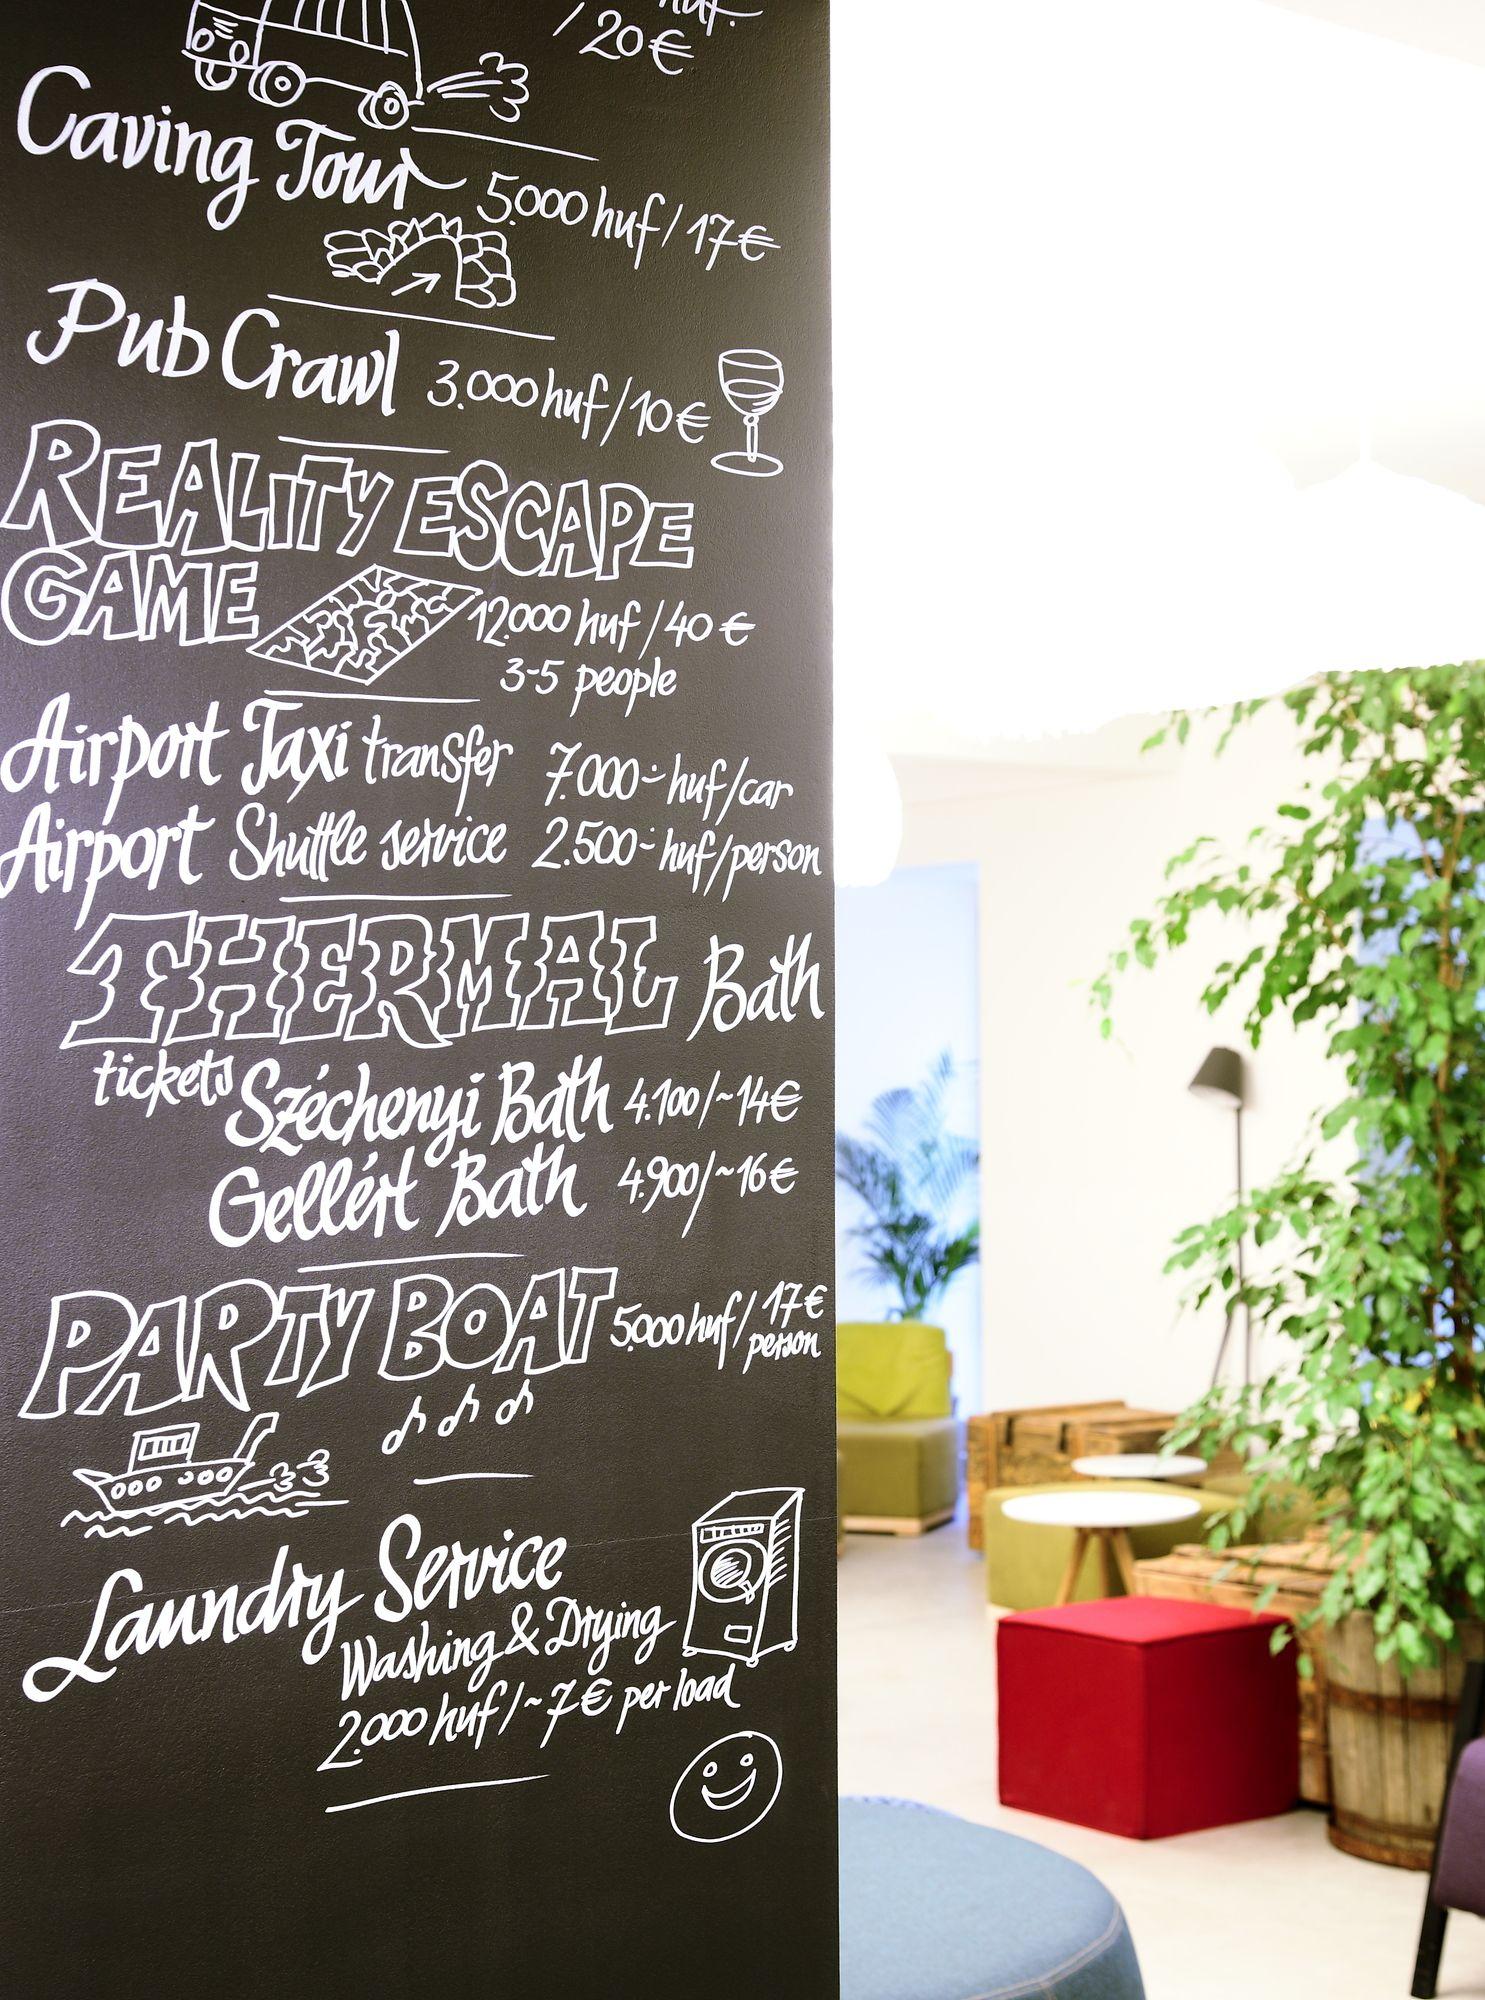 huf.
/20€
Caving Tour 5.000 huf/17€
Pub Crawl 3.000 huf/10€
REALITY ESCAPE
GAME 12.000 huf/40€
3-5 people
Airport Taxi transfer 7.000÷ huf/car
Airport Shuttle service 2.500÷ huf/person
THERMAL Bath
tickets Széchenyi Bath 4.100/~14€
Gellért Bath 4.900/~16€
PARTY BOAT 5.000 huf/17€
person
Laundry Service
Washing & Drying
2.000 huf/~7€ per load